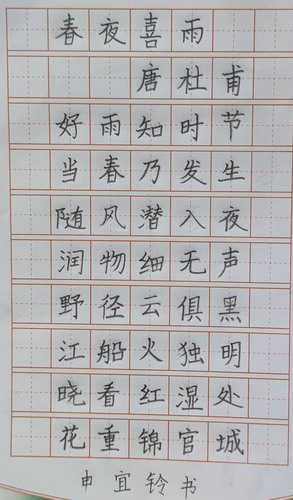 春夜喜雨
唐杜甫
好雨知时节
当春乃发生
随风潜入夜
润物细无声
野径云俱黑
江船火独明
晓看红湿处
花重锦官城
申宜铃书